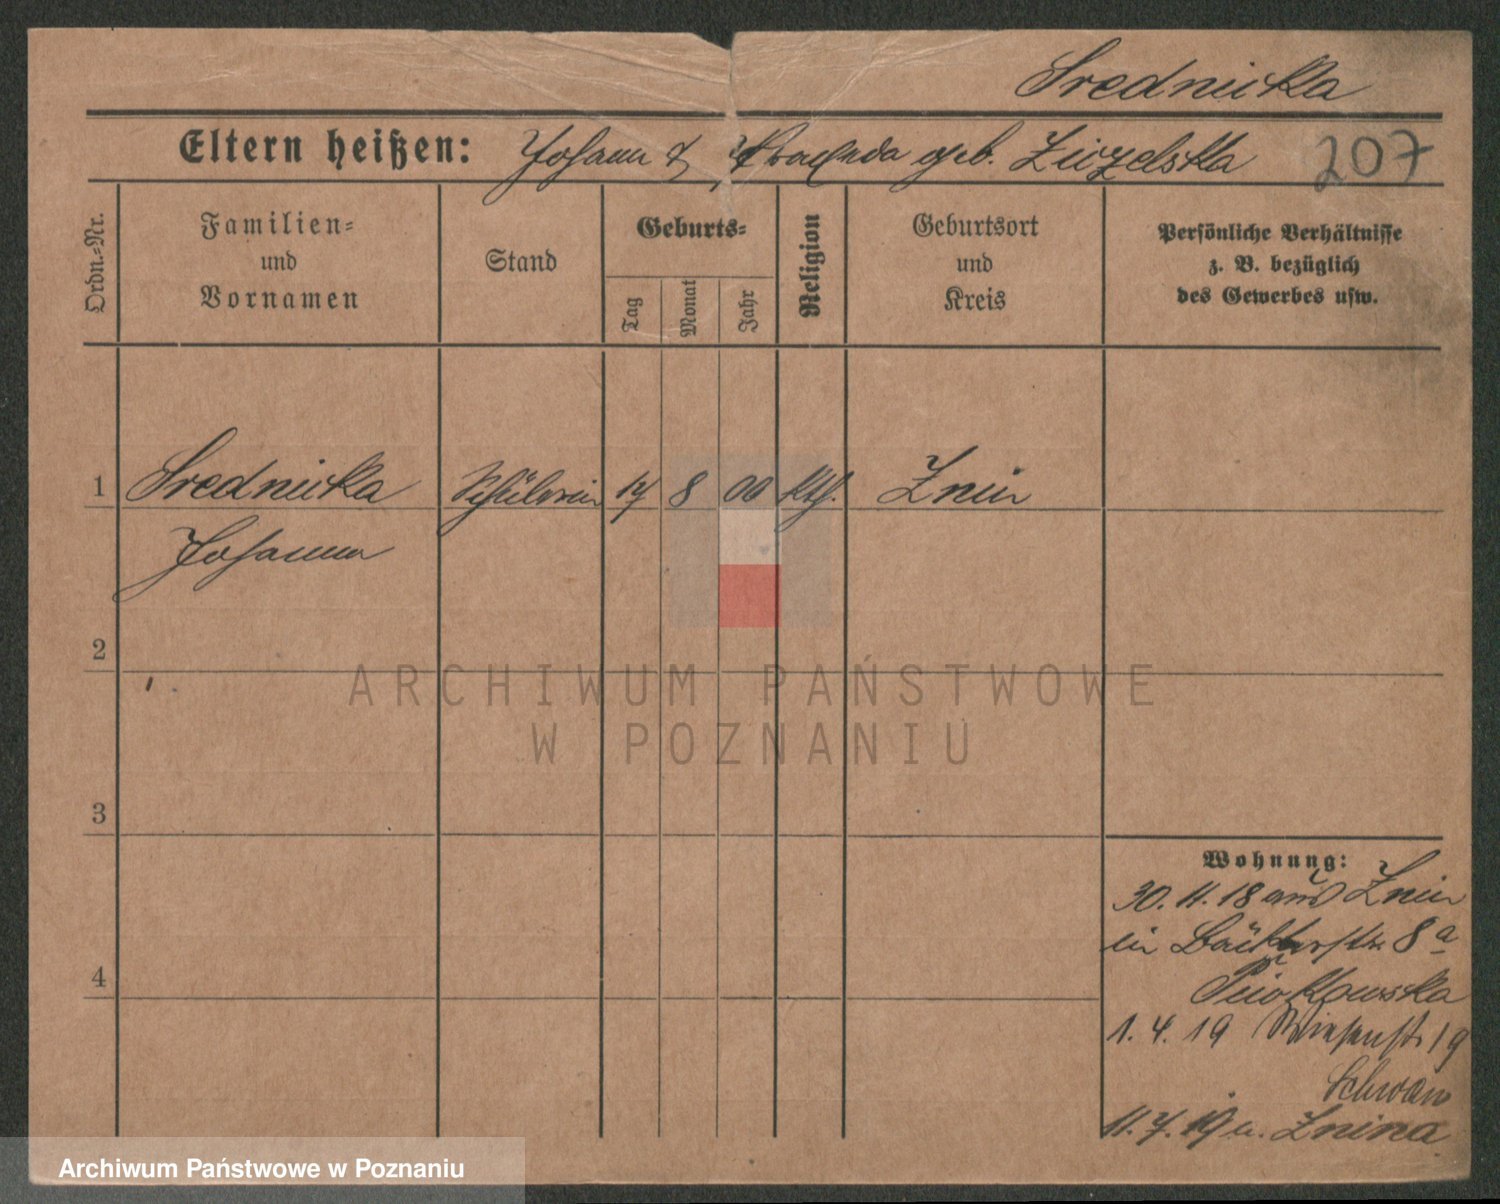 Srednicka
Eltern heißen: Johann & geb.
207
Ordn.-Nr.
Familien-
und
Vornamen
Stand
Geburts-
Tag
Monat
Jahr
Religion
Geburtsort
und
Kreis
Persönliche Verhältnisse
z. B. bezüglich
des Gewerbes usw.
1 Srednicka Schülerin 17 8 00 kth. Znin
Johanna
2
3
4
Wohnung:
30. 11. 18 aus Znin
in Bäckerstr. 8a
Piotkowska
1. 4. 19 Wiesenstr. 19
Schwan
11. 7. 19 n. Znina
ARCHIWUM PAŃSTWOWE
W POZNANIU
Archiwum Państwowe w Poznaniu